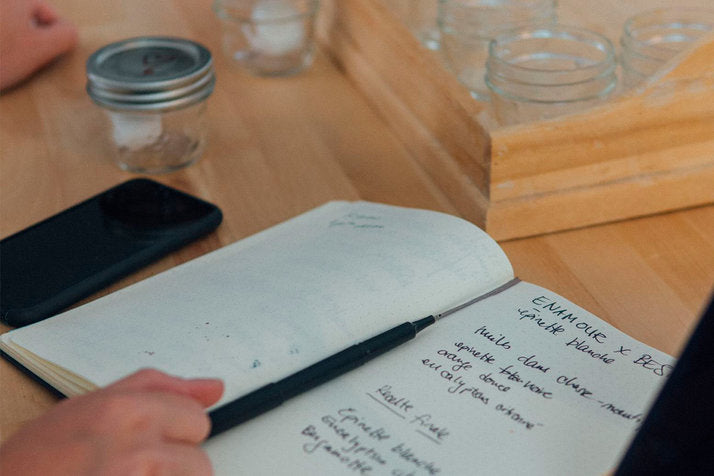 ENAMOUR X BES
épinette blanche
huiles dans chasse-moustique
épinette
orange douce
eucalyptus citronné
Recette finale
Épinette blanche
Eucalyptus
Bergamote